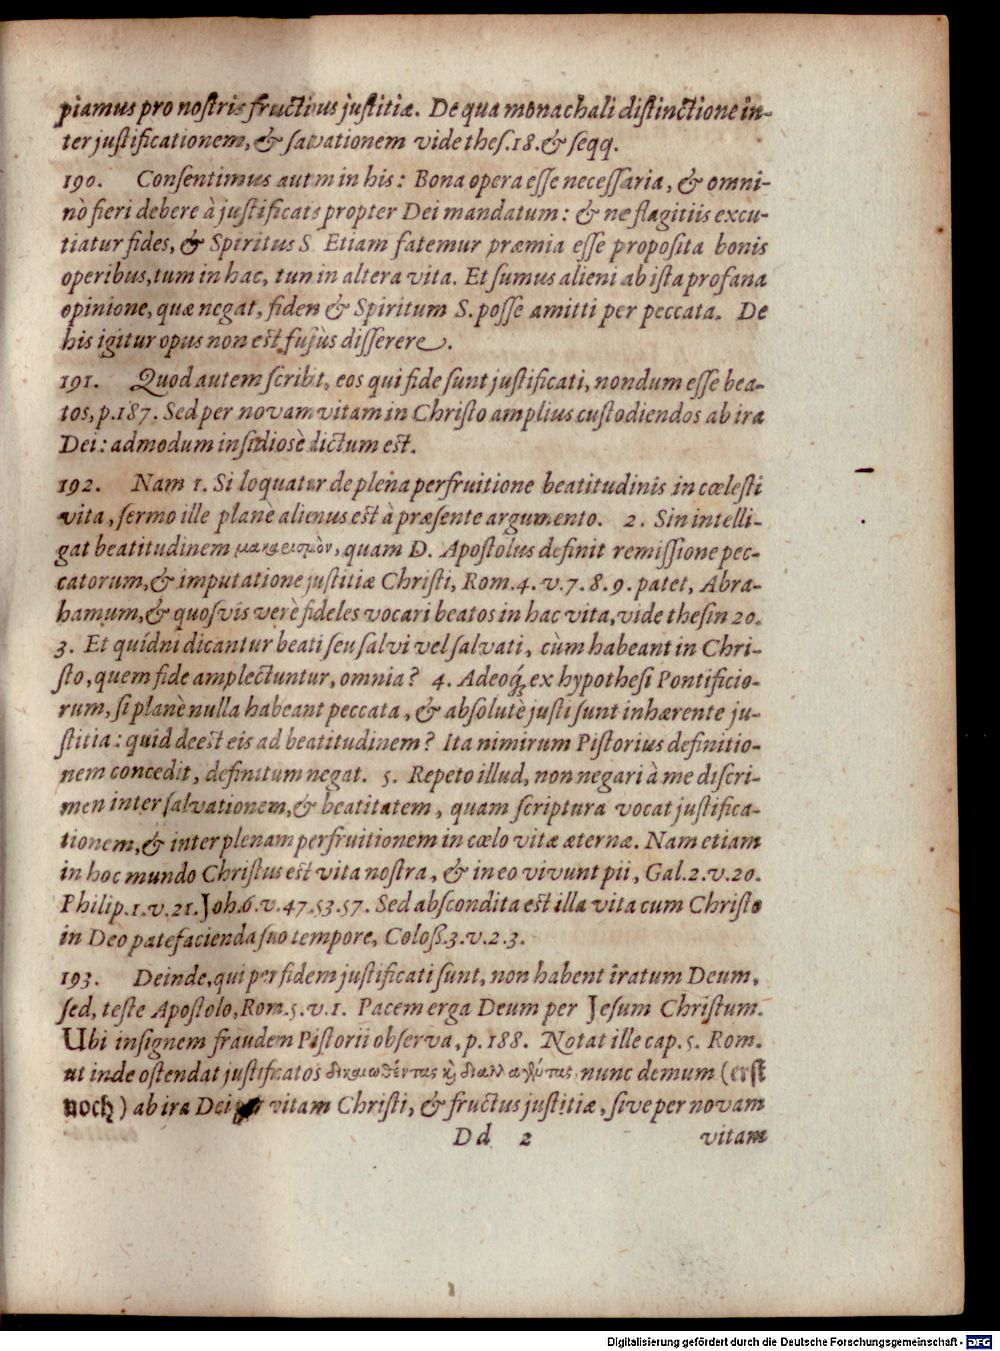 piamus pro nostris fructibus justitiæ. De qua monachali distinctione in-
ter justificationem, & salvationem vide thes. 18. & seqq.
190. Consentimus autem in his: Bona opera esse necessaria, & omni-
nò fieri debere à justificatis propter Dei mandatum: & ne flagitiis excu-
tiatur fides, & Spiritus S. Etiam fatemur præmia esse proposita bonis
operibus, tum in hac, tum in altera vita. Et sumus alieni ab ista profana
opinione, quæ negat, fidem & Spiritum S. posse amitti per peccata. De
his igitur opus non est fusiùs disserere.
191. Quod autem scribit, eos qui fide sunt justificati, nondum esse bea-
tos, p. 187. Sed per novam vitam in Christo amplius custodiendos ab ira
Dei: admodum insidiosè dictum est.
192. Nam 1. Si loquatur de plena perfruitione beatitudinis in cœlesti
vita, sermo ille planè alienus est à præsente argumento. 2. Sin intelli-
gat beatitudinem μακαρισμὸν, quam D. Apostolus definit remissione pec-
catorum, & imputatione justitiæ Christi, Rom. 4. v. 7. 8. 9. patet, Abra-
hamum, & quosvis verè fideles vocari beatos in hac vita, vide thesin 20.
3. Et quídni dicantur beati seu salvi vel salvati, cùm habeant in Chri-
sto, quem fide amplectuntur, omnia? 4. Adeoq́; ex hypothesi Pontificio-
rum, si planè nulla habeant peccata, & absolutè justi sunt inhærente ju-
stitia: quid deest eis ad beatitudinem? Ita nimirum Pistorius definitio-
nem concedit, definitum negat. 5. Repeto illud, non negari à me discri-
men inter salvationem, & beatitatem, quam scriptura vocat justifica-
tionem, & inter plenam perfruitionem in cœlo vitæ æternæ. Nam etiam
in hoc mundo Christus est vita nostra, & in eo vivunt pii, Gal. 2. v. 20.
Philip. 1. v. 21. Joh. 6. v. 47. 53. 57. Sed abscondita est illa vita cum Christo
in Deo patefacienda suo tempore, Coloß. 3. v. 2. 3.
193. Deinde, qui per fidem justificati sunt, non habent iratum Deum,
sed, teste Apostolo, Rom. 5. v. 1. Pacem erga Deum per Jesum Christum.
Ubi insignem fraudem Pistorii observa, p. 188. Notat ille cap. 5. Rom.
ut inde ostendat justificatos δικαιωθέντας κỳ διαλλαγέντας, nunc demum (erst
noch) ab ira Dei per vitam Christi, & fructus justitiæ, sive per novam
Dd 2 vitam
Digitalisierung gefördert durch die Deutsche Forschungsgemeinschaft - DFG